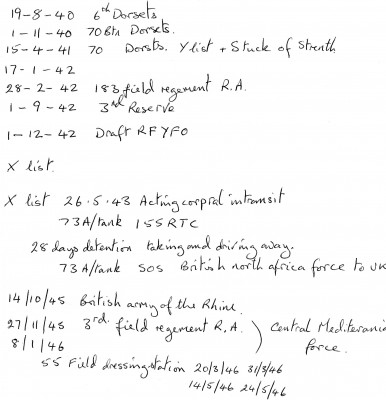 19-8-40 6th Dorsets
1-11-40 70 Btn Dorsets.
15-4-41 70 Dorsts. Y list + Stuck of Strenth
17-1-42
28-2-42 183 field regement R.A.
1-9-42 3rd Reserve
1-12-42 Draft RFYFO
X list.
X list 26.5.43 Acting corpral intransit
73A/tank 155RTC
28 days detention taking and driving away.
73A/tank SOS British north africa force to UK
14/10/45 British army of the Rhine.
27/11/45 3rd field regement R.A. ) Central Mediterania
8/1/46 force.
55 Field dressing station 20/3/46 31/3/46
14/5/46 24/5/46